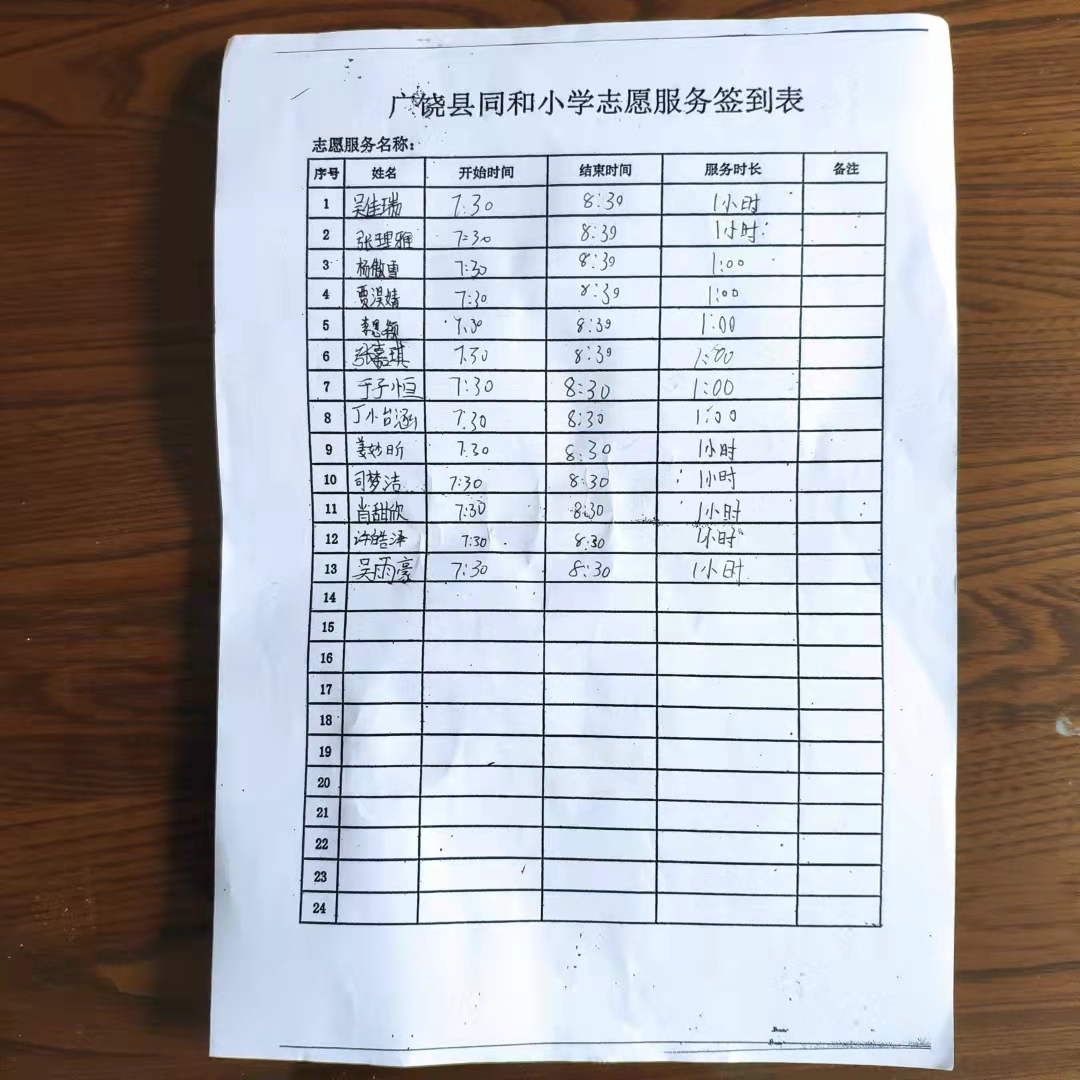 广饶县同和小学志愿服务签到表
志愿服务名称：
序号 姓名 开始时间 结束时间 服务时长 备注
1 吴佳瑞 7:30 8:30 1小时
2 张理雅 7:30 8:30 1小时
3 杨傲雪 7:30 8:30 1:00
4 贾淏婧 7:30 8:30 1:00
5 李思颖 7:30 8:30 1:00
6 张嘉琪 7:30 8:30 1:00
7 于子恒 7:30 8:30 1:00
8 丁小台涵 7:30 8:30 1:00
9 姜妙昕 7:30 8:30 1小时
10 司梦洁 7:30 8:30 1小时
11 肖甜欣 7:30 8:30 1小时
12 许皓泽 7:30 8:30 1小时
13 吴雨豪 7:30 8:30 1小时
14
15
16
17
18
19
20
21
22
23
24